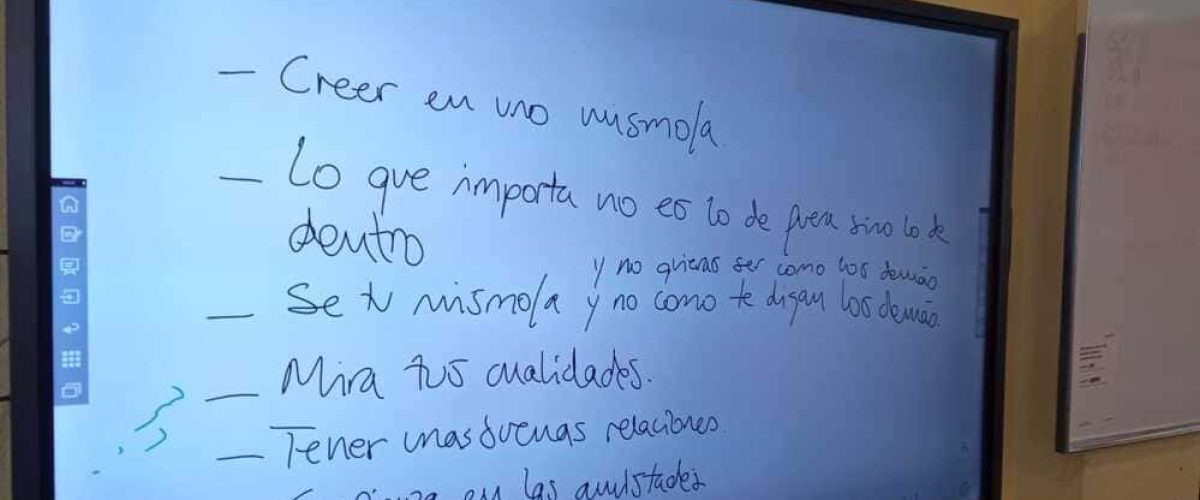 - Creer en uno mismo/a.
- Lo que importa no es lo de fuera sino lo de
dentro
y no quieras ser como los demás
- Se tu mismo/a y no como te digan los demás.
- Mira tus cualidades.
- Tener unas buenas relaciones.
en las amistades